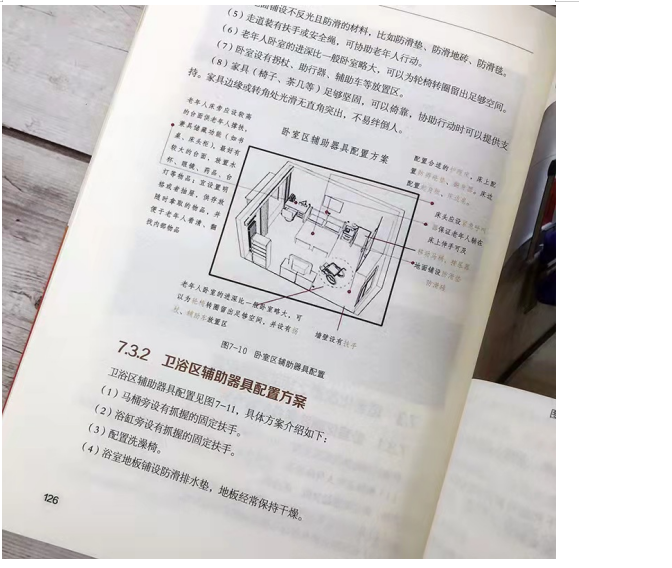 地面铺设不反光且防滑的材料，比如防滑垫、防滑地砖、防滑毯。
（5）走道装有扶手或安全绳，可协助老年人行动。
（6）老年人卧室的进深比一般卧室略大，可以为轮椅转圈留出足够空间。
（7）卧室设有拐杖、助行器、辅助车等放置区。
（8）家具（椅子、茶几等）足够坚固，可以倚靠，协助行动时可以提供支
持。家具边缘或转角处光滑无直角突出，不易绊倒人。
卧室区辅助器具配置方案
老年人床旁应设较高
的台面供老年人撑扶，
兼具储藏功能（如书
桌、床头柜），最好有
较大的台面，放置水
杯、眼镜、药品、台
灯等物品；宜设置明
格或者抽屉，供存放
随时拿取的物品，并
便于老年人看清、翻
找内部物品
配置合适的
床上配
置
床边
配置
床头应设
保证老年人躺在
床上伸手可及
地面铺设
老年人卧室的进深比一般卧室略大，可
以为轮椅转圈留出足够空间，并设有
放置区
墙壁设有扶手
图7-10 卧室区辅助器具配置
7.3.2 卫浴区辅助器具配置方案
卫浴区辅助器具配置见图7-11，具体方案介绍如下：
（1）马桶旁设有抓握的固定扶手。
（2）浴缸旁设有抓握的固定扶手。
（3）配置洗澡椅。
（4）浴室地板铺设防滑排水垫，地板经常保持干燥。
126